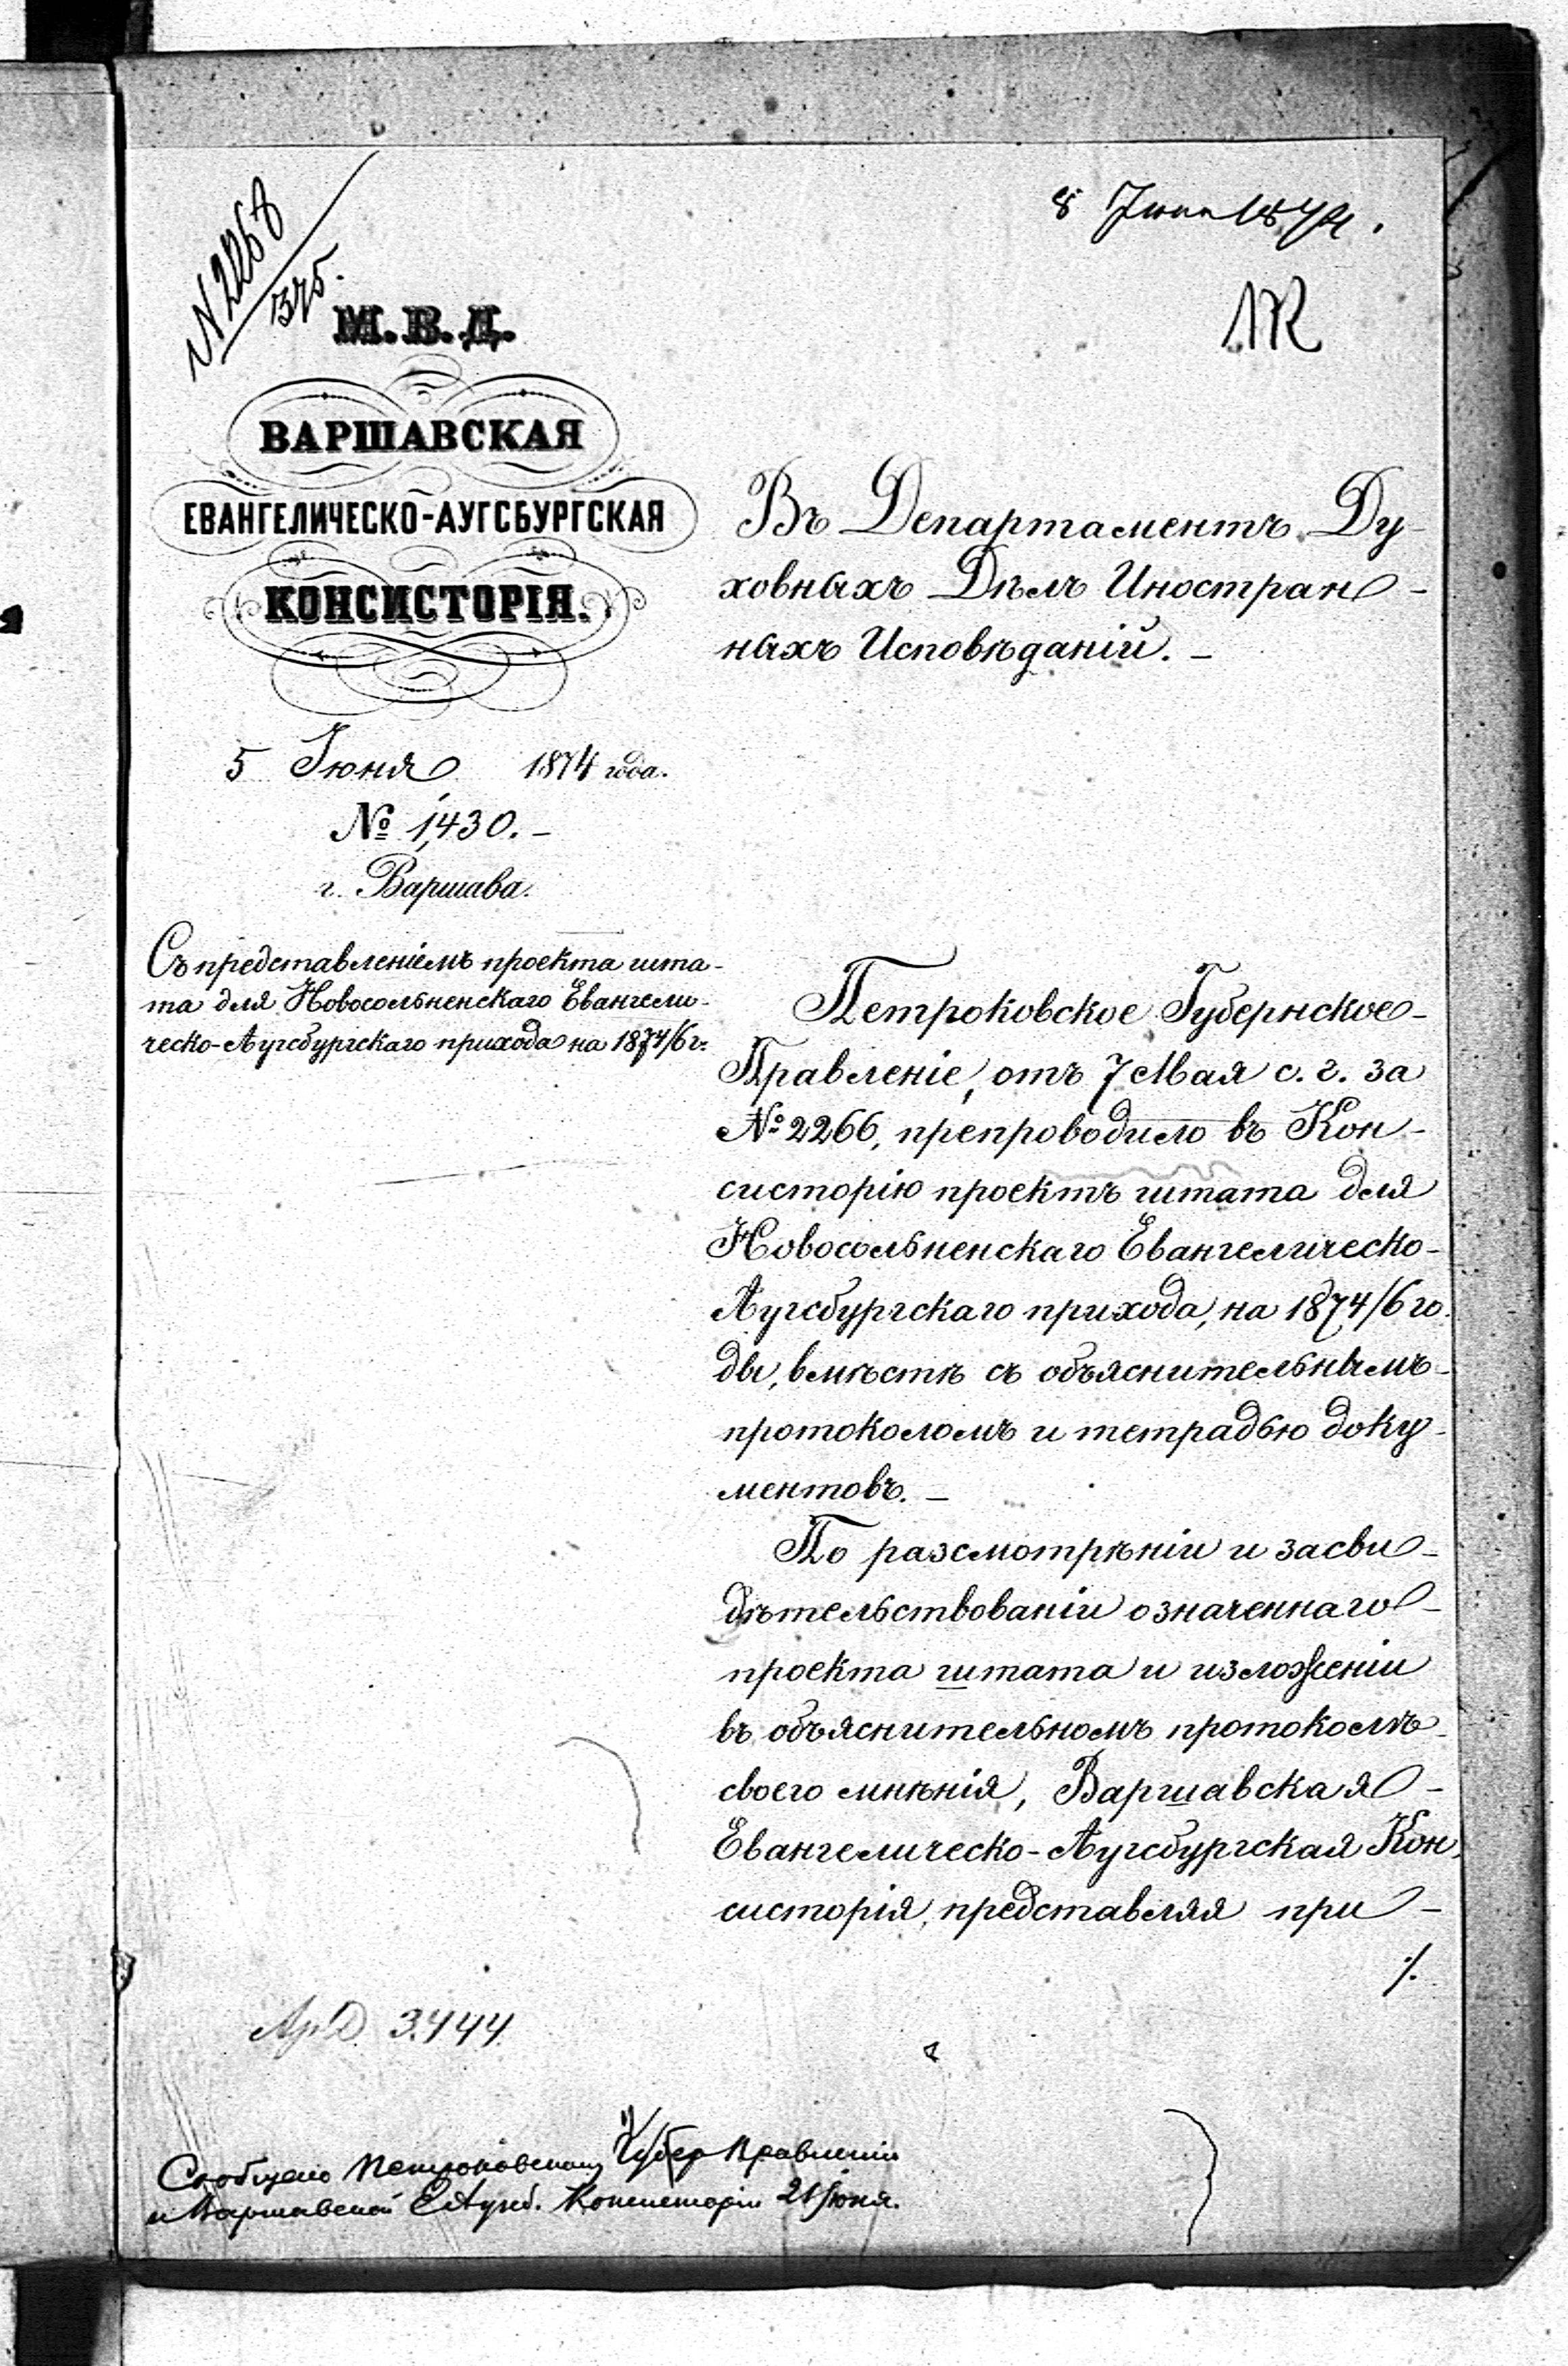 № 2268
375.
8 Іюня 1874.
М. В. Д.
ВАРШАВСКАЯ
ЕВАНГЕЛИЧЕСКО-АУГСБУРГСКАЯ
КОНСИСТОРІЯ.
5 Іюня 1874 года.
№ 1,430. –
г. Варшава.
Съ представленіемъ проекта шта-
та для Новосольненскаго Евангели-
ческо-Аугсбургскаго прихода на 1874/6 г.
Въ Департаментъ Ду-
ховныхъ Дѣлъ Иностран-
ныхъ Исповѣданій. –
Петроковское Губернское
Правленіе, отъ 7 Мая с. г. за
№ 2266, препроводило въ Кон-
систорію проектъ штата для
Новосольненскаго Евангелическо-
Аугсбургскаго прихода, на 1874/6 го-
ды, вмѣстѣ съ объяснительнымъ
протоколомъ и тетрадью доку-
ментовъ. –
По разсмотрѣніи и засви-
дѣтельствованіи означеннаго
проекта штата и изложеніи
въ объяснительномъ протоколѣ
своего мнѣнія, Варшавская
Евангелическо-Аугсбургская Кон-
систорія, представляя при-
./.
3.444.
Сообщено Петроковскому Губер Правленію
и Варшавской Е Аугсб. Консисторіи 21 Іюня.